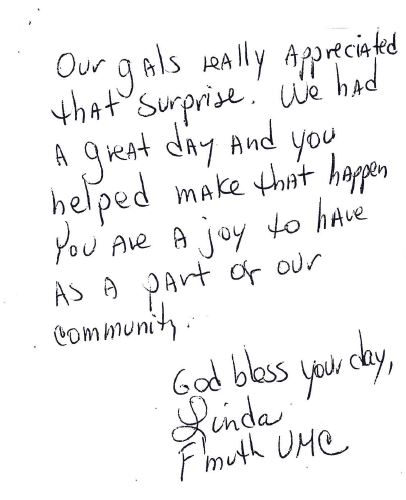 Our gals really appreciated
that surprise. We had
a great day and you
helped make that happen
You are a joy to have
as a part of our
community.
God bless your day,
Linda
F'muth UMC